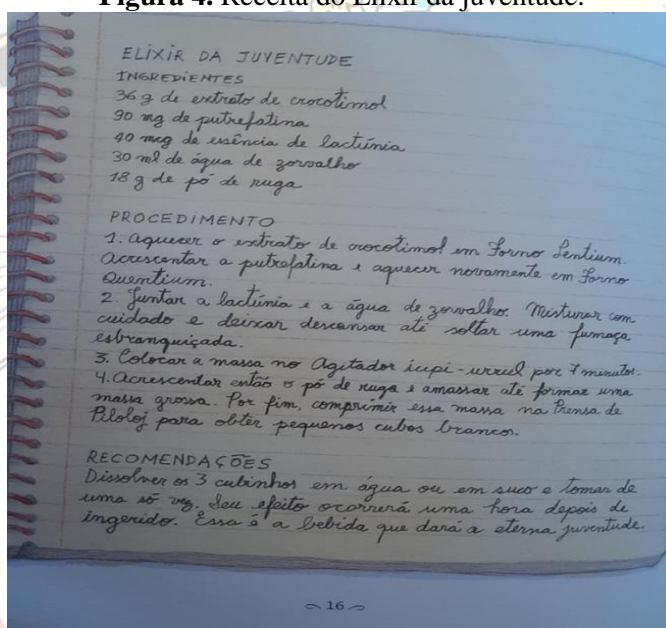 Figura 4. Receita do Elixir da juventude.
ELIXIR DA JUVENTUDE
INGREDIENTES
36 g de extrato de crocotimol
90 mg de putrefatina
40 mcg de essência de lactúnia
30 ml de água de zorvalho
18 g de pó de ruga
PROCEDIMENTO
1. Aquecer o extrato de crocotimol em Forno Lentium.
Acrescentar a putrefatina e aquecer novamente em Forno
Quentium.
2. Juntar a lactúnia e a água de zorvalho. Misturar com
cuidado e deixar descansar até soltar uma fumaça
esbranquiçada.
3. Colocar a massa no Agitador icupi-urrul por 7 minutos.
4. Acrescentar então o pó de ruga e amassar até formar uma
massa grossa. Por fim, comprimir essa massa na Prensa de
Piloloj para obter pequenos cubos brancos.
RECOMENDAÇÕES
Dissolver os 3 cubinhos em água ou em suco e tomar de
uma só vez. Seu efeito ocorrerá uma hora depois de
ingerido. Essa é a bebida que dará a eterna juventude.
16